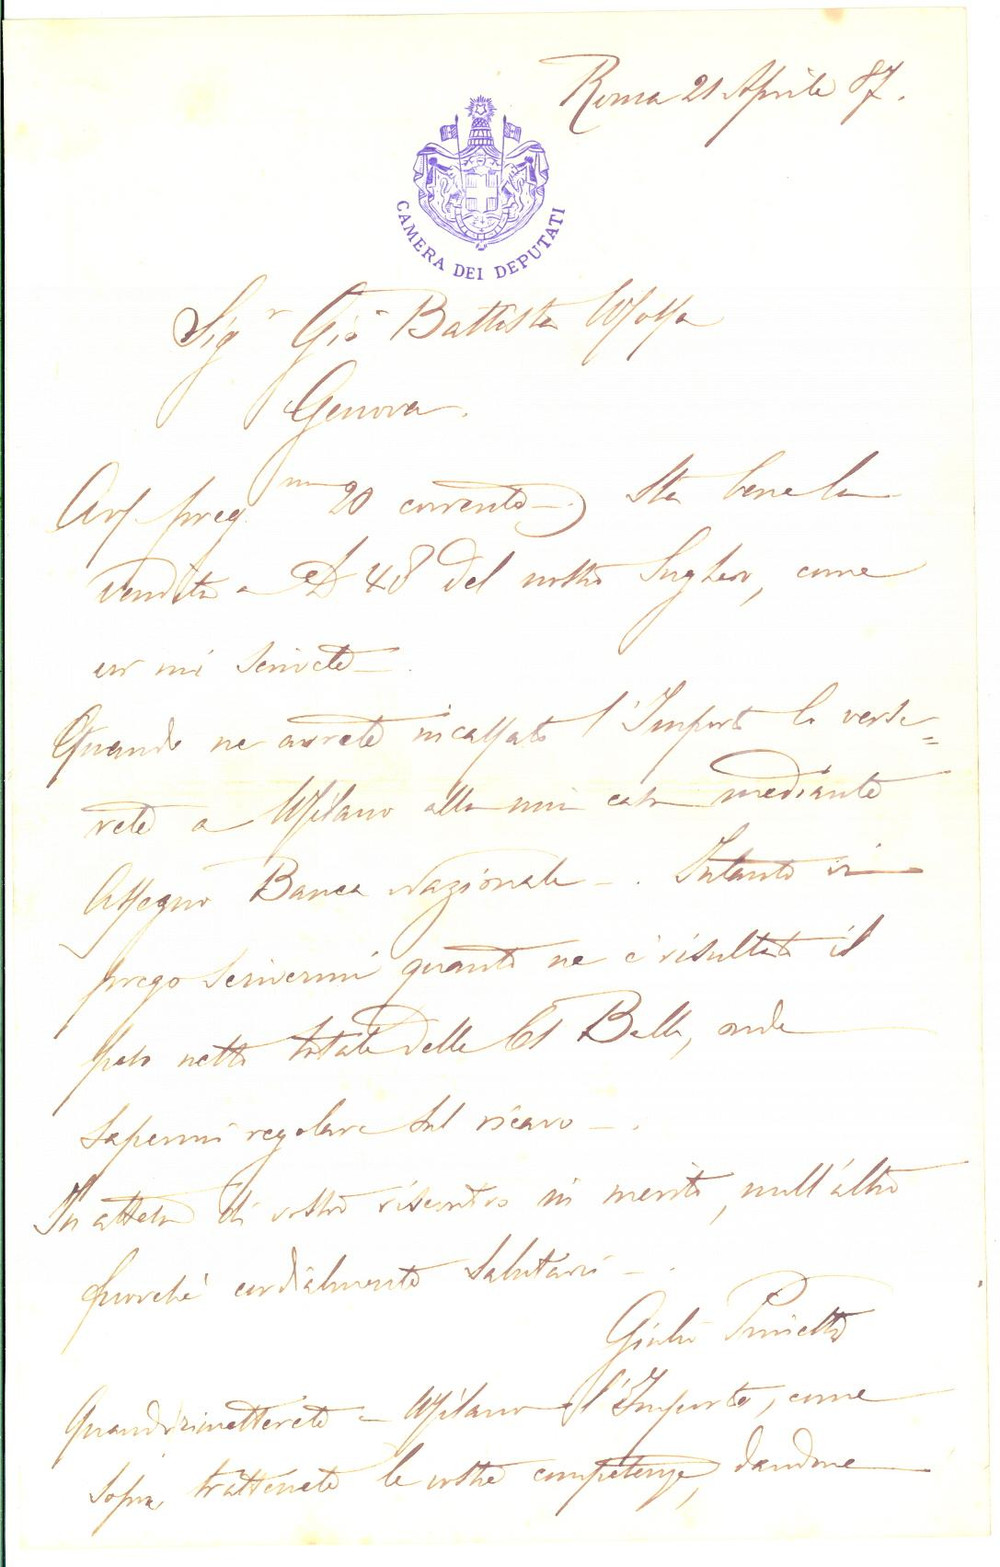 Roma 21 Aprile 87.
CAMERA DEI DEPUTATI
Sigr Gio Battista
Genova.
preg. 20 corrente. Sta bene la
vendita a 48 del nostro Sughero, come
mi scrivete.
Quando ne avrete incassato l'Importo lo verse=
rete a Milano alla mia casa mediante
Assegno Banca Nazionale. Intanto vi
prego scrivermi quanto ne è risultato il
peso netto totale delle 61 Balle, onde
sapermi regolare sul ricavo.
In attesa di vostro riscontro in merito, null'altro
furché cordialmente salutarvi.
Giulio
Quando rimetterete a Milano l'Importo, come
sopra, trattenete le vostre competenze, dandone